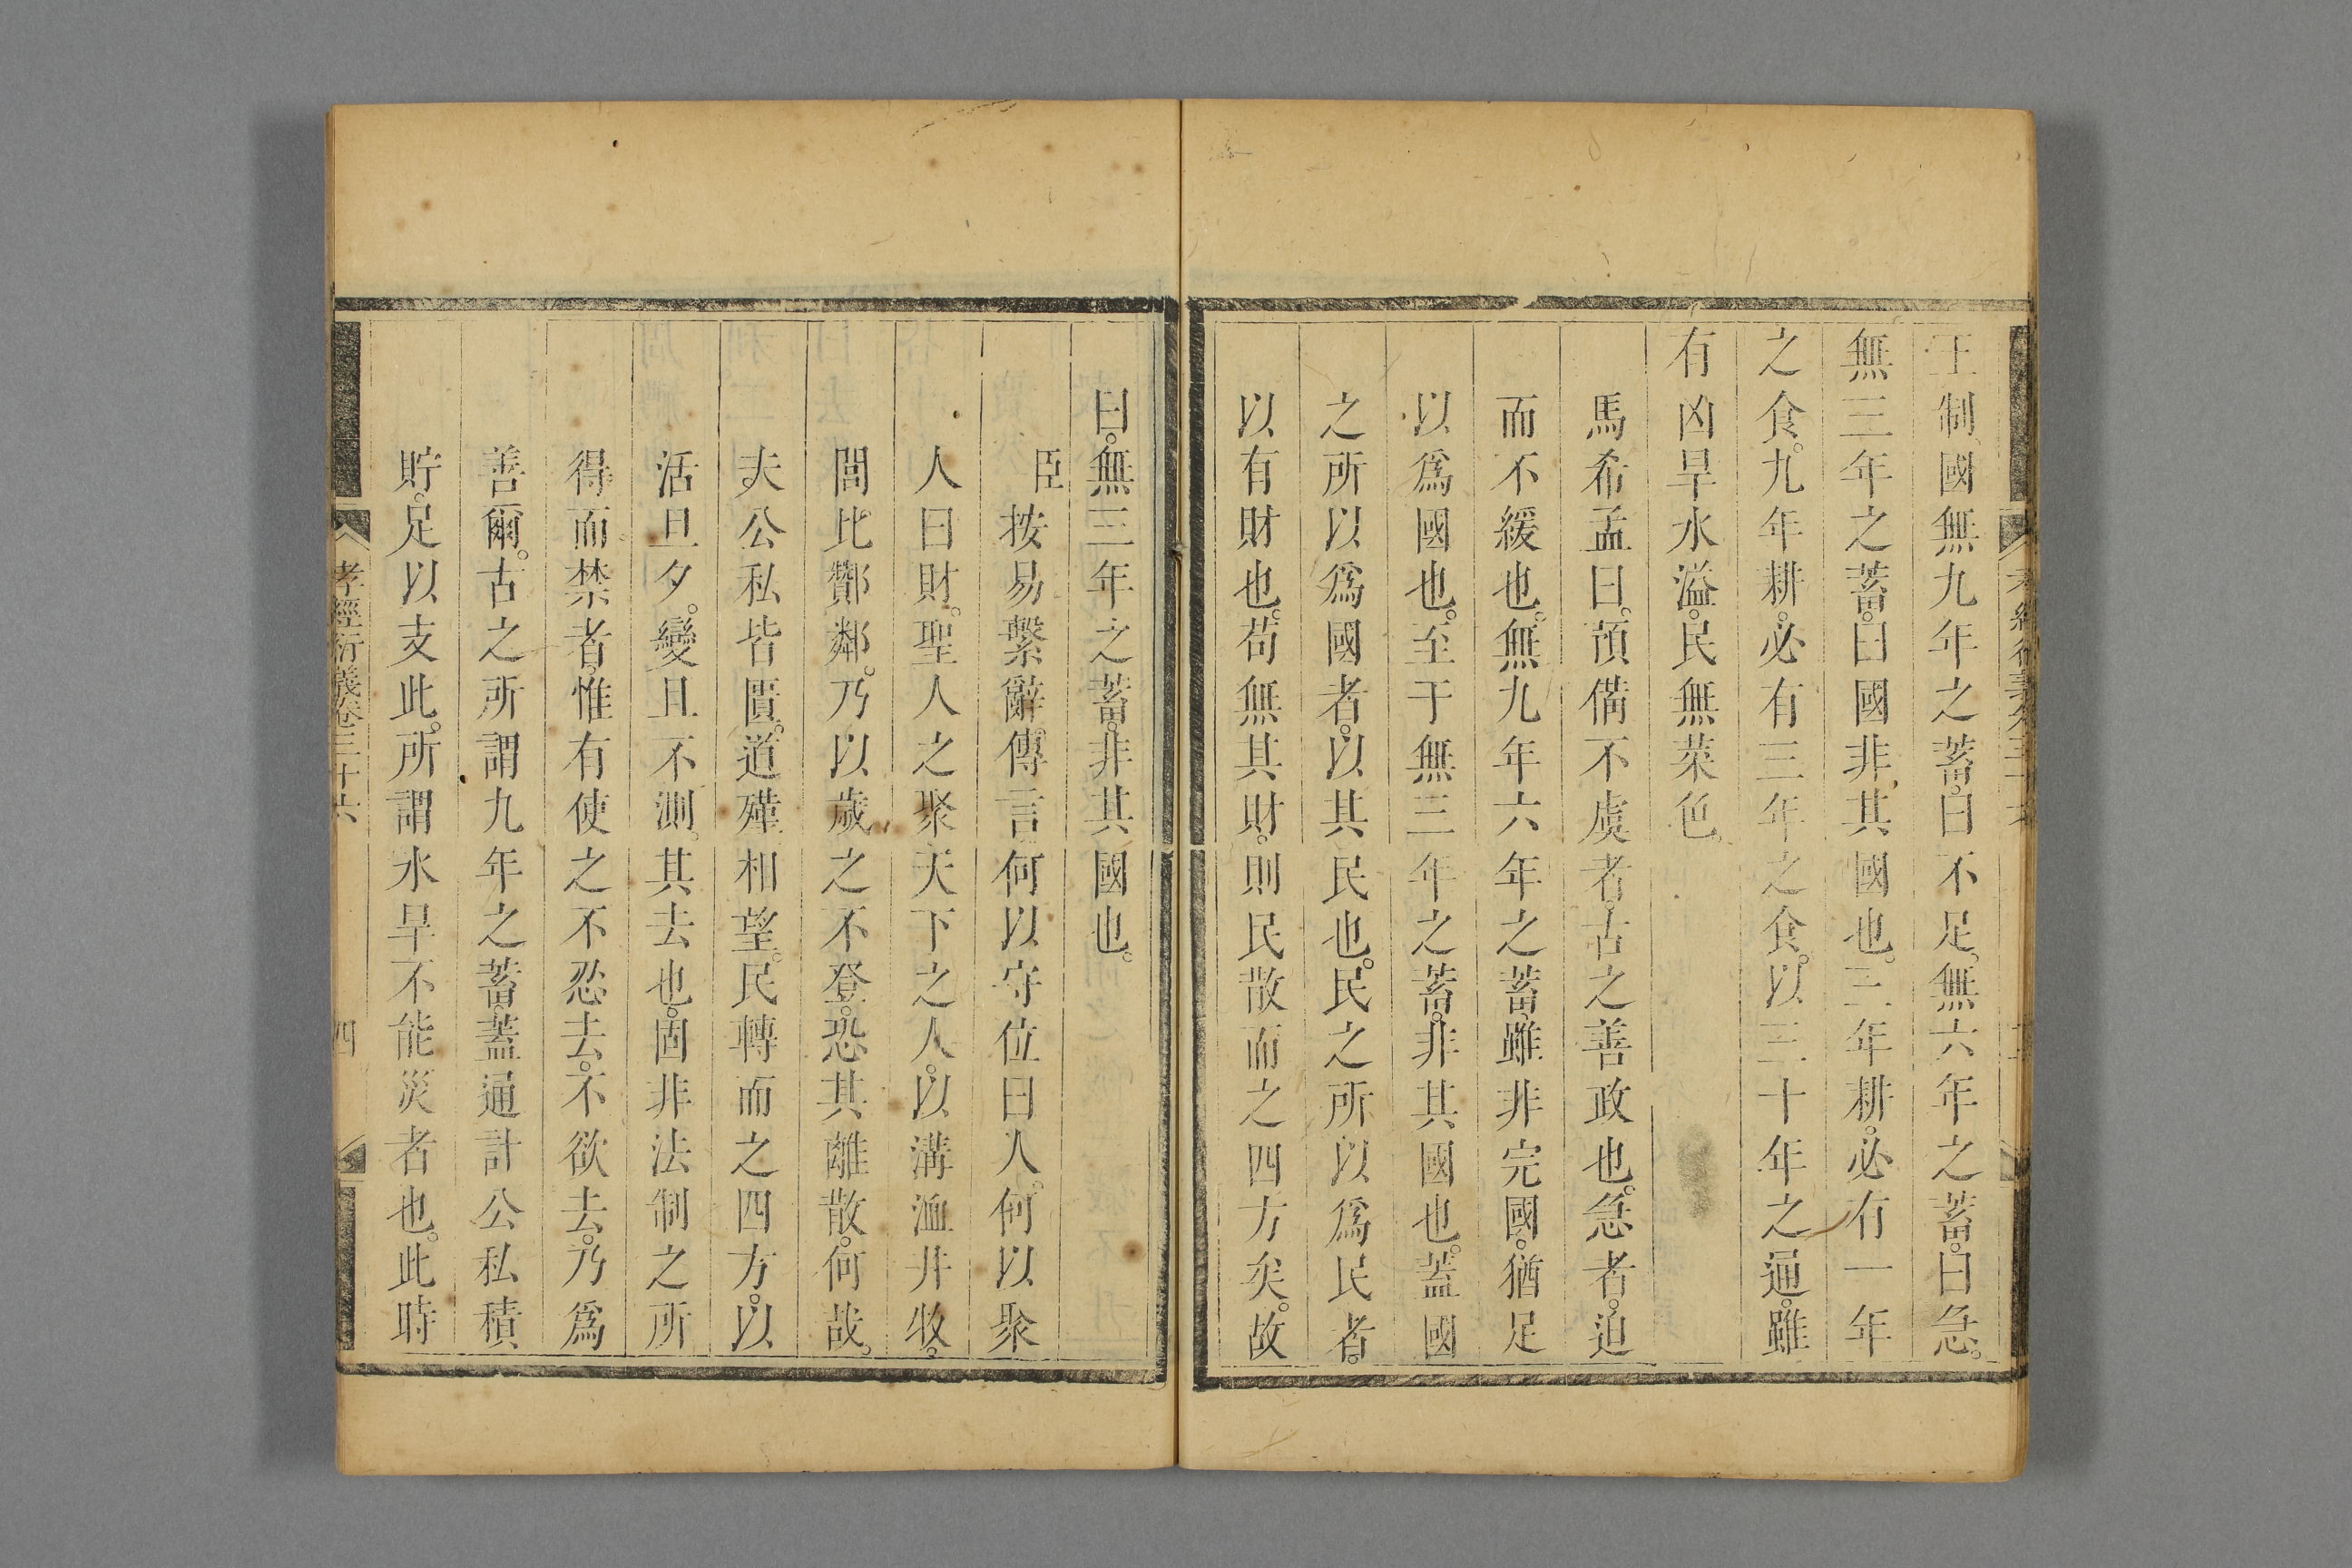 王制國無九年之蓄曰不足無六年之蓄曰急
無三年之蓄曰國非其國也三年耕必有一年
之食九年耕必有三年之食以三十年之通雖
有凶旱水溢民無菜色
馬希孟曰預備不虞者古之善政也急者迫
而不緩也無九年六年之蓄雖非完國猶足
以爲國也至于無三年之蓄非其國也蓋國
之所以爲國者以其民也民之所以爲民者
以有財也苟無其財則民散而之四方矣故
曰無三年之蓄非其國也
臣按易繫辭傳言何以守位曰人何以聚
人曰財聖人之聚天下之人以溝洫井牧
閭比酇鄰乃以歲之不登恐其離散何哉
夫公私皆匱道殣相望民轉而之四方以
活旦夕變且不測其去也固非法制之所
得而禁者惟有使之不忍去不欲去乃爲
善爾古之所謂九年之蓄蓋通計公私積
貯足以支此所謂水旱不能災者也此時
孝經衍義卷三十六 四